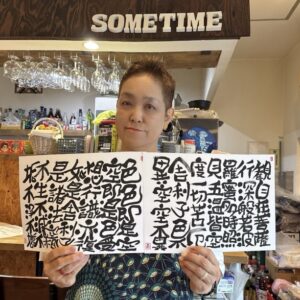 SOMETIME
観自在菩薩
行深般若波
羅蜜多時照
見五蘊皆空
度一切苦厄
舎利子色不
異空空不異
色色即是空
空即是色受
想行識亦復
如是舎利子
是諸法空相
不生不滅不
垢不浄不増